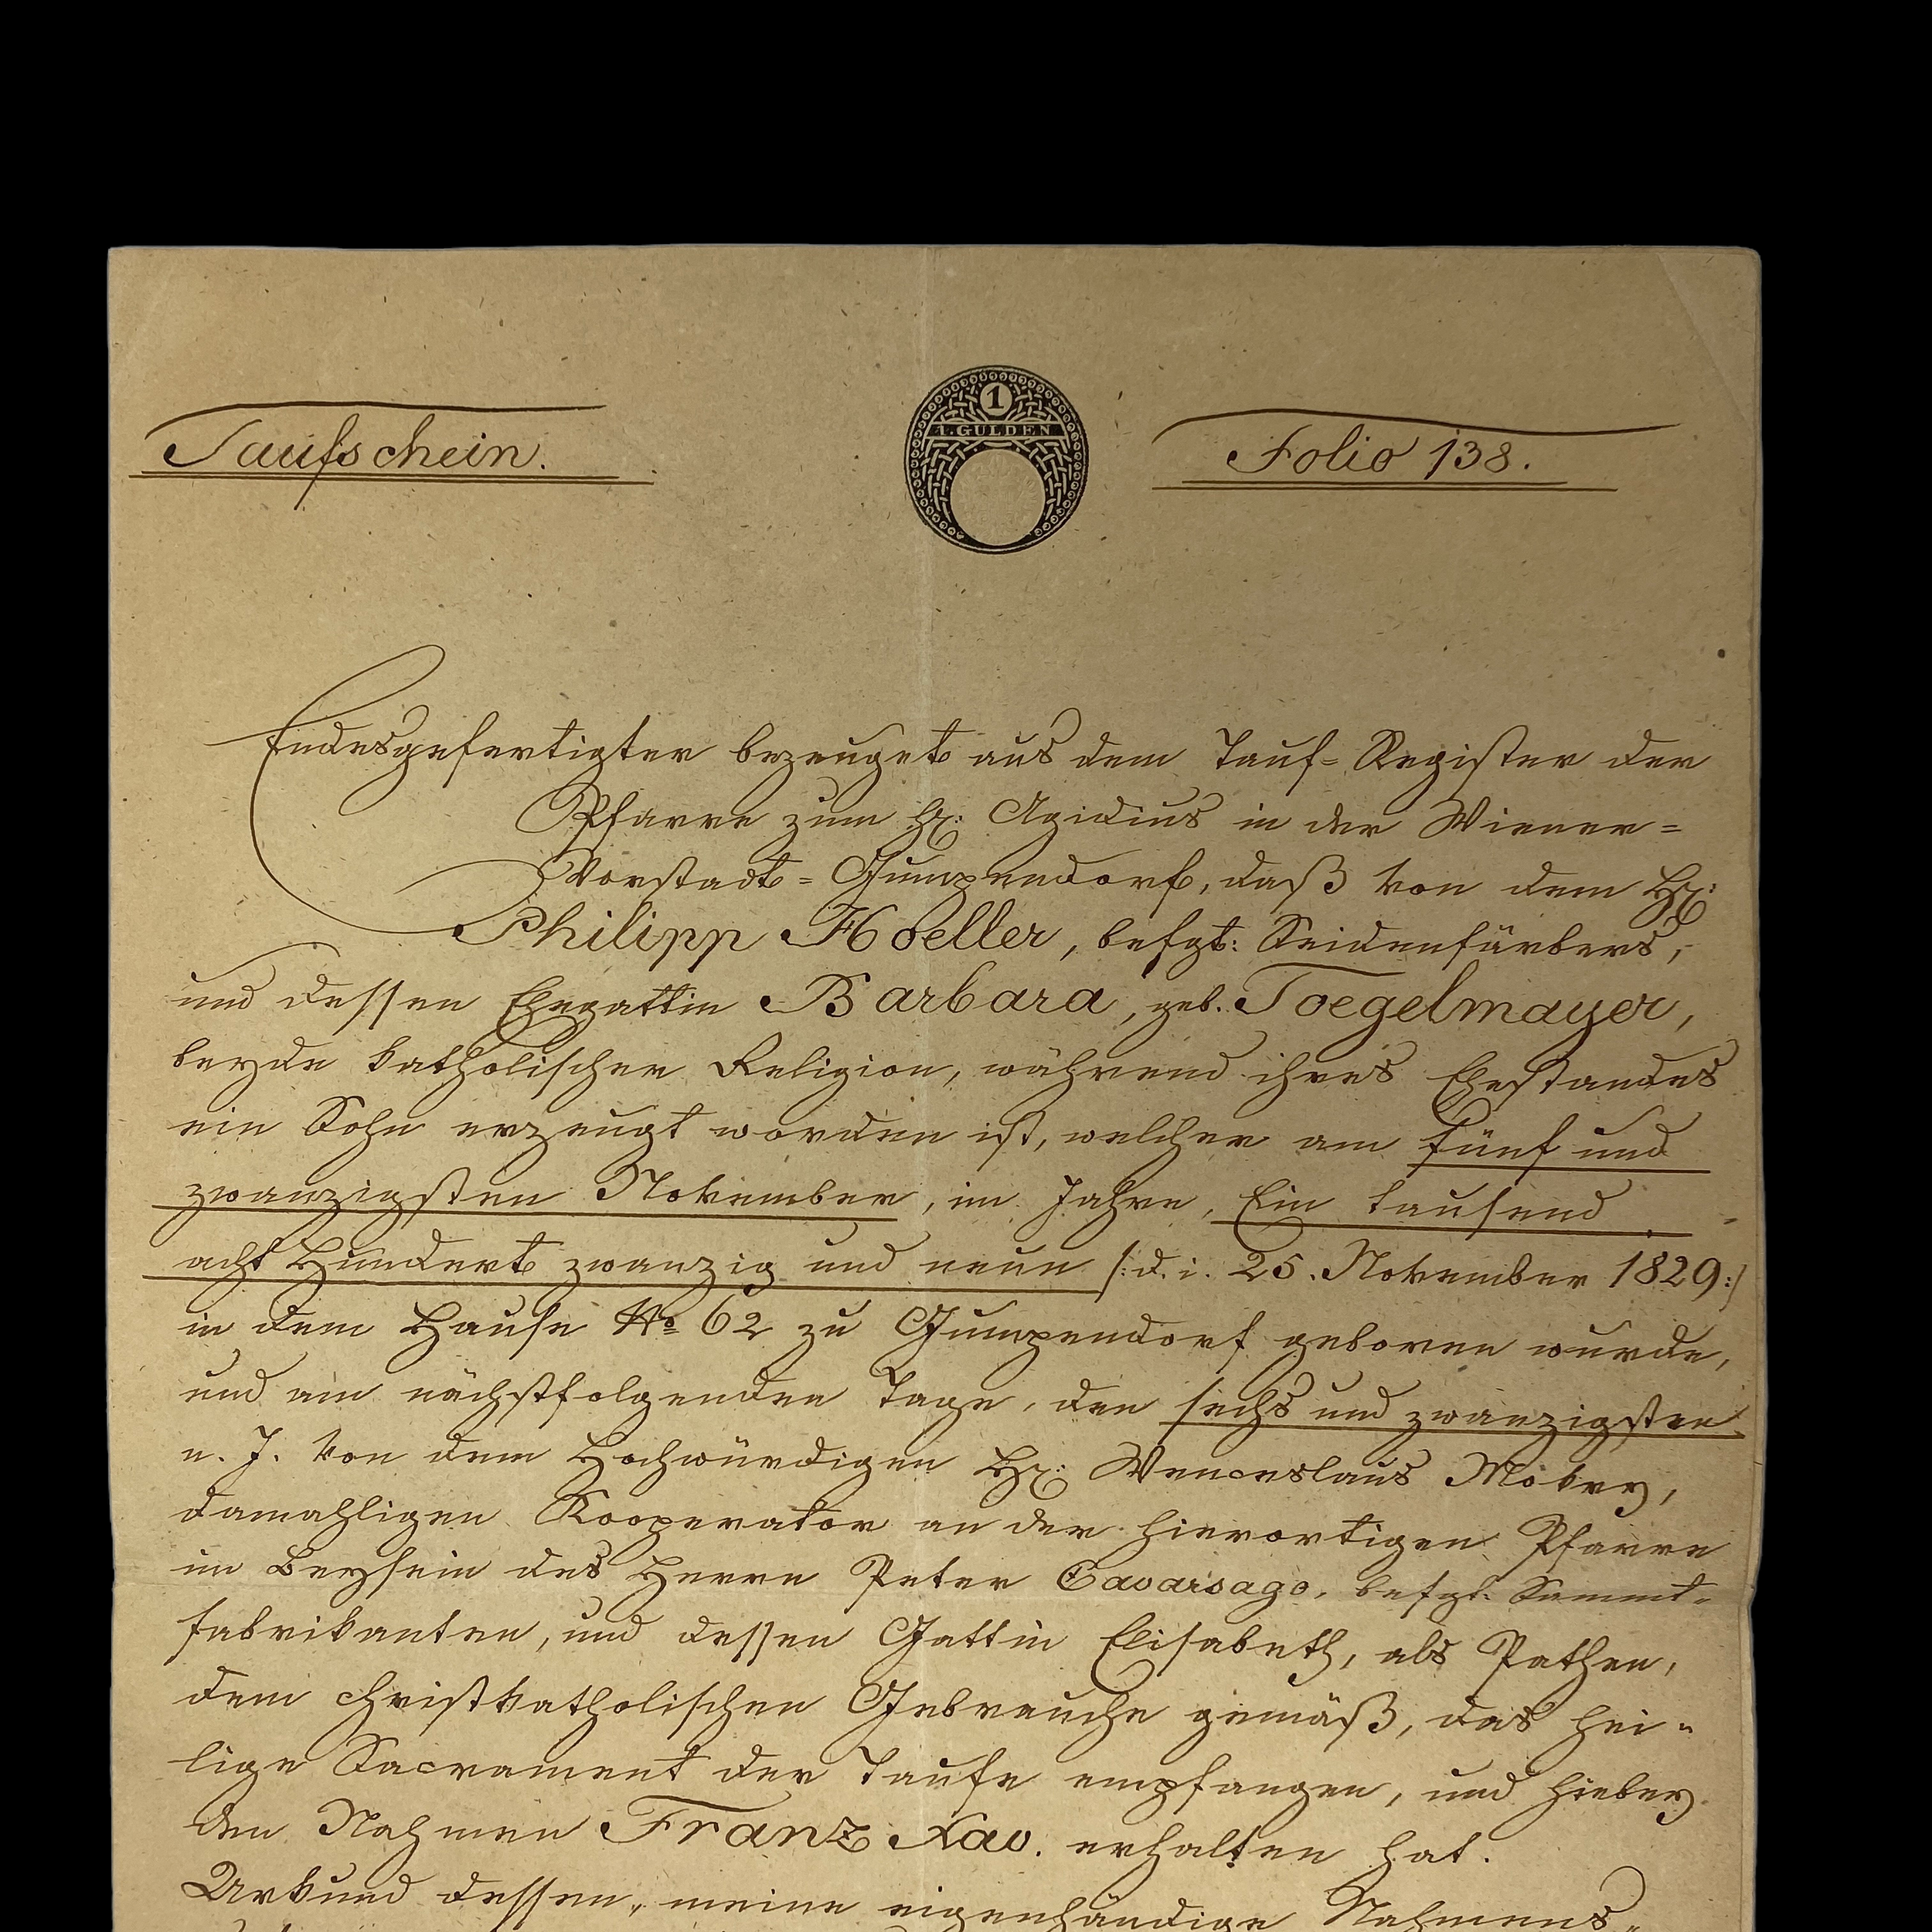 Taufschein.
1
1. GULDEN
Folio 138.
Endesgefertigter bezeuget aus dem Tauf=Register der
Pfarre zum hl: Agidius in der Wiener=
Vorstadt=Gumpendorf, daß von dem Hr:
Philipp Hoeller, befgt: Seidenfärbers,
und dessen Ehegattin Barbara, geb. Toegelmayer,
beyde katholischer Religion, während ihres Ehestandes
ein Sohn erzeugt worden ist, welcher am fünf und
zwanzigsten November, im Jahre, Ein tausend
acht Hundert zwanzig und neun /:d. i. 25. November 1829:/
in dem Hause No 62 zu Gumpendorf geboren wurde,
und am nächstfolgenden Tage, den sechs und zwanzigsten
n. J. von dem Hochwürdigen Hr: Wenceslaus
damahligen Kooperator an der hierortigen Pfarre
im Beysein des Herrn Peter Cavaisago, befgt. Sammt=
fabrikanten, und dessen Gattin Elisabeth, als Pathen,
dem christkatholischen Gebrauche gemäß, das hei=
lige Sacrament der Taufe empfangen, und hiebey
den Nahmen Franz Xav. erhalten hat.
Urkund dessen, meine eigenhändige Nahmens=